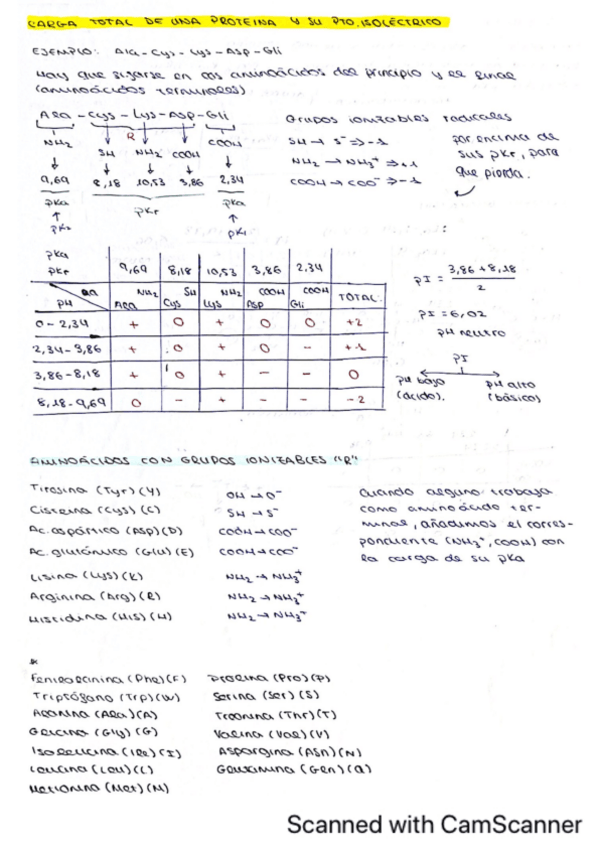 CARGA TOTAL DE UNA PROTEINA Y SU PTO. ISOLÉCTRICO
EJEMPLO: Ala - Cys - Lys - Asp - Gli
Hay que fijarse en los aminoácidos del principio y el final
(aminoácidos terminales)
Ala - Cys - Lys - Asp - Gli
R
NH₂ SH NH₂ COOH COOH
9,69 8,18 10,53 3,86 2,34
pKa pKr pKa
pK₂ pK₁
Grupos ionizables radicales
SH → S⁻ ⇒ -1
NH₂ → NH₃⁺ ⇒ +1
COOH → COO⁻ ⇒ -1
por encima de
sus pKr, para
que pierda.
pKa
pKr 9,69 8,18 10,53 3,86 2,34
aa NH₂ SH NH₂ COOH COOH
pH Ala Cys Lys Asp Gli TOTAL:
0 - 2,34 + 0 + 0 0 +2
2,34 - 3,86 + 0 + 0 - +1
3,86 - 8,18 + 0 + - - 0
8,18 - 9,69 0 - + - - -2
pI = 3,86 + 8,18
2
pI = 6,02
pH neutro
pI
pH bajo pH alto
(ácido). (básico)
AMINOÁCIDOS CON GRUPOS IONIZABLES "R"
Tirosina (Tyr) (Y) OH → O⁻
Cisteína (Cys) (C) SH → S⁻
Ac. aspártico (Asp) (D) COOH → COO⁻
Ac. glutámico (Glu) (E) COOH → COO⁻
Lisina (Lys) (K) NH₂ → NH₃⁺
Arginina (Arg) (R) NH₂ → NH₃⁺
Histidina (His) (H) NH₂ → NH₃⁺
Cuando alguno trabaja
como aminoácido ter-
minal, añadimos el corres-
pondiente (NH₃⁺, COOH) con
la carga de su pKa
*
Fenilalanina (Phe) (F) Prolina (Pro) (P)
Triptófano (Trp) (W) Serina (Ser) (S)
Alanina (Ala) (A) Treonina (Thr) (T)
Glicina (Gly) (G) Valina (Val) (V)
Isoleucina (Ile) (I) Aspargina (Asn) (N)
Leucina (Leu) (L) Glutamina (Gln) (Q)
Metionina (Met) (M)
Scanned with CamScanner